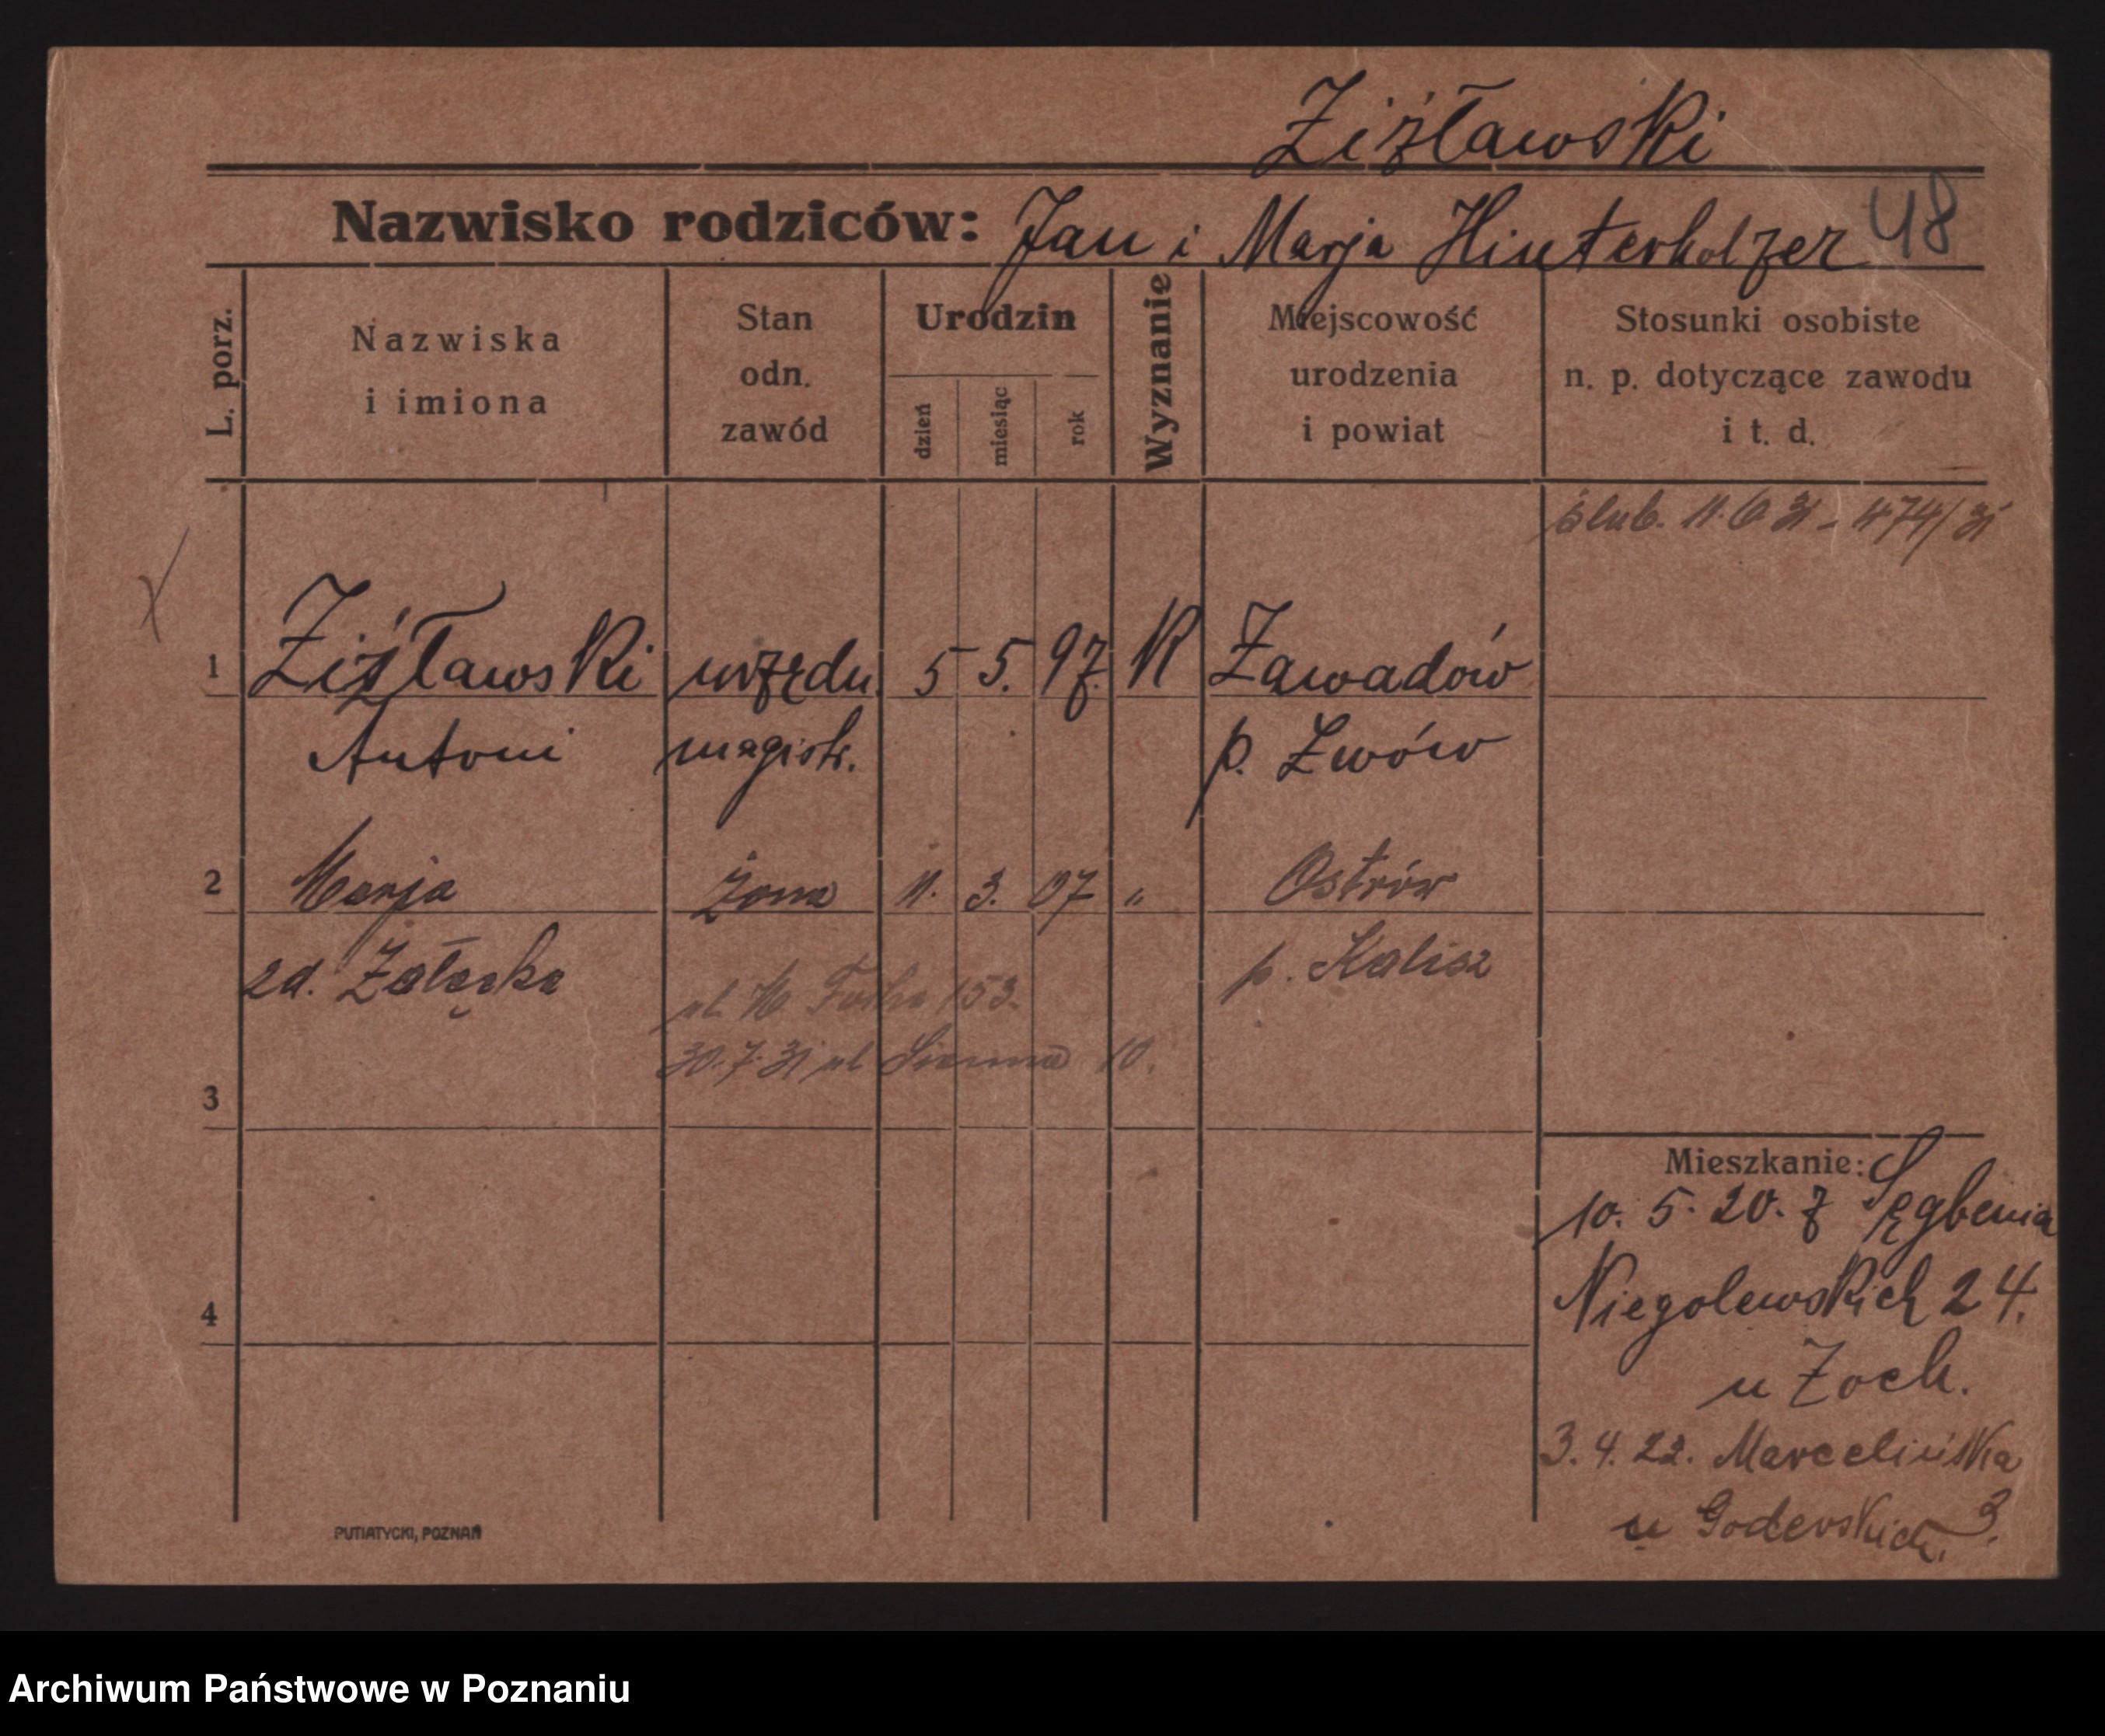 Żiżławski
Nazwisko rodziców: Jan i Marja Hinterholzer 48
L. porz.
Nazwiska
i imiona
Stan
odn.
zawód
Urodzin
dzień
miesiąc
rok
Wyznanie
Miejscowość
urodzenia
i powiat
Stosunki osobiste
n. p. dotyczące zawodu
i t. d.
ślub. 11.6.31 - 474/31
1 Żiżławski urzędn. 5 5. 97. K Zawadów
Antoni magistr. p. Lwów
2 Marja żona 11. 3. 07 " Ostrów
zd. Załęcka p. Kalisz
ul. M Focha 153.
30.7.31 ul Sienna 10.
3
4
Mieszkanie:
10. 5. 20. z
Niegolewskich 24.
u Zoch.
3. 4. 22. Marcelińska
u 3.
PUTIATYCKI, POZNAŃ
Archiwum Państwowe w Poznaniu